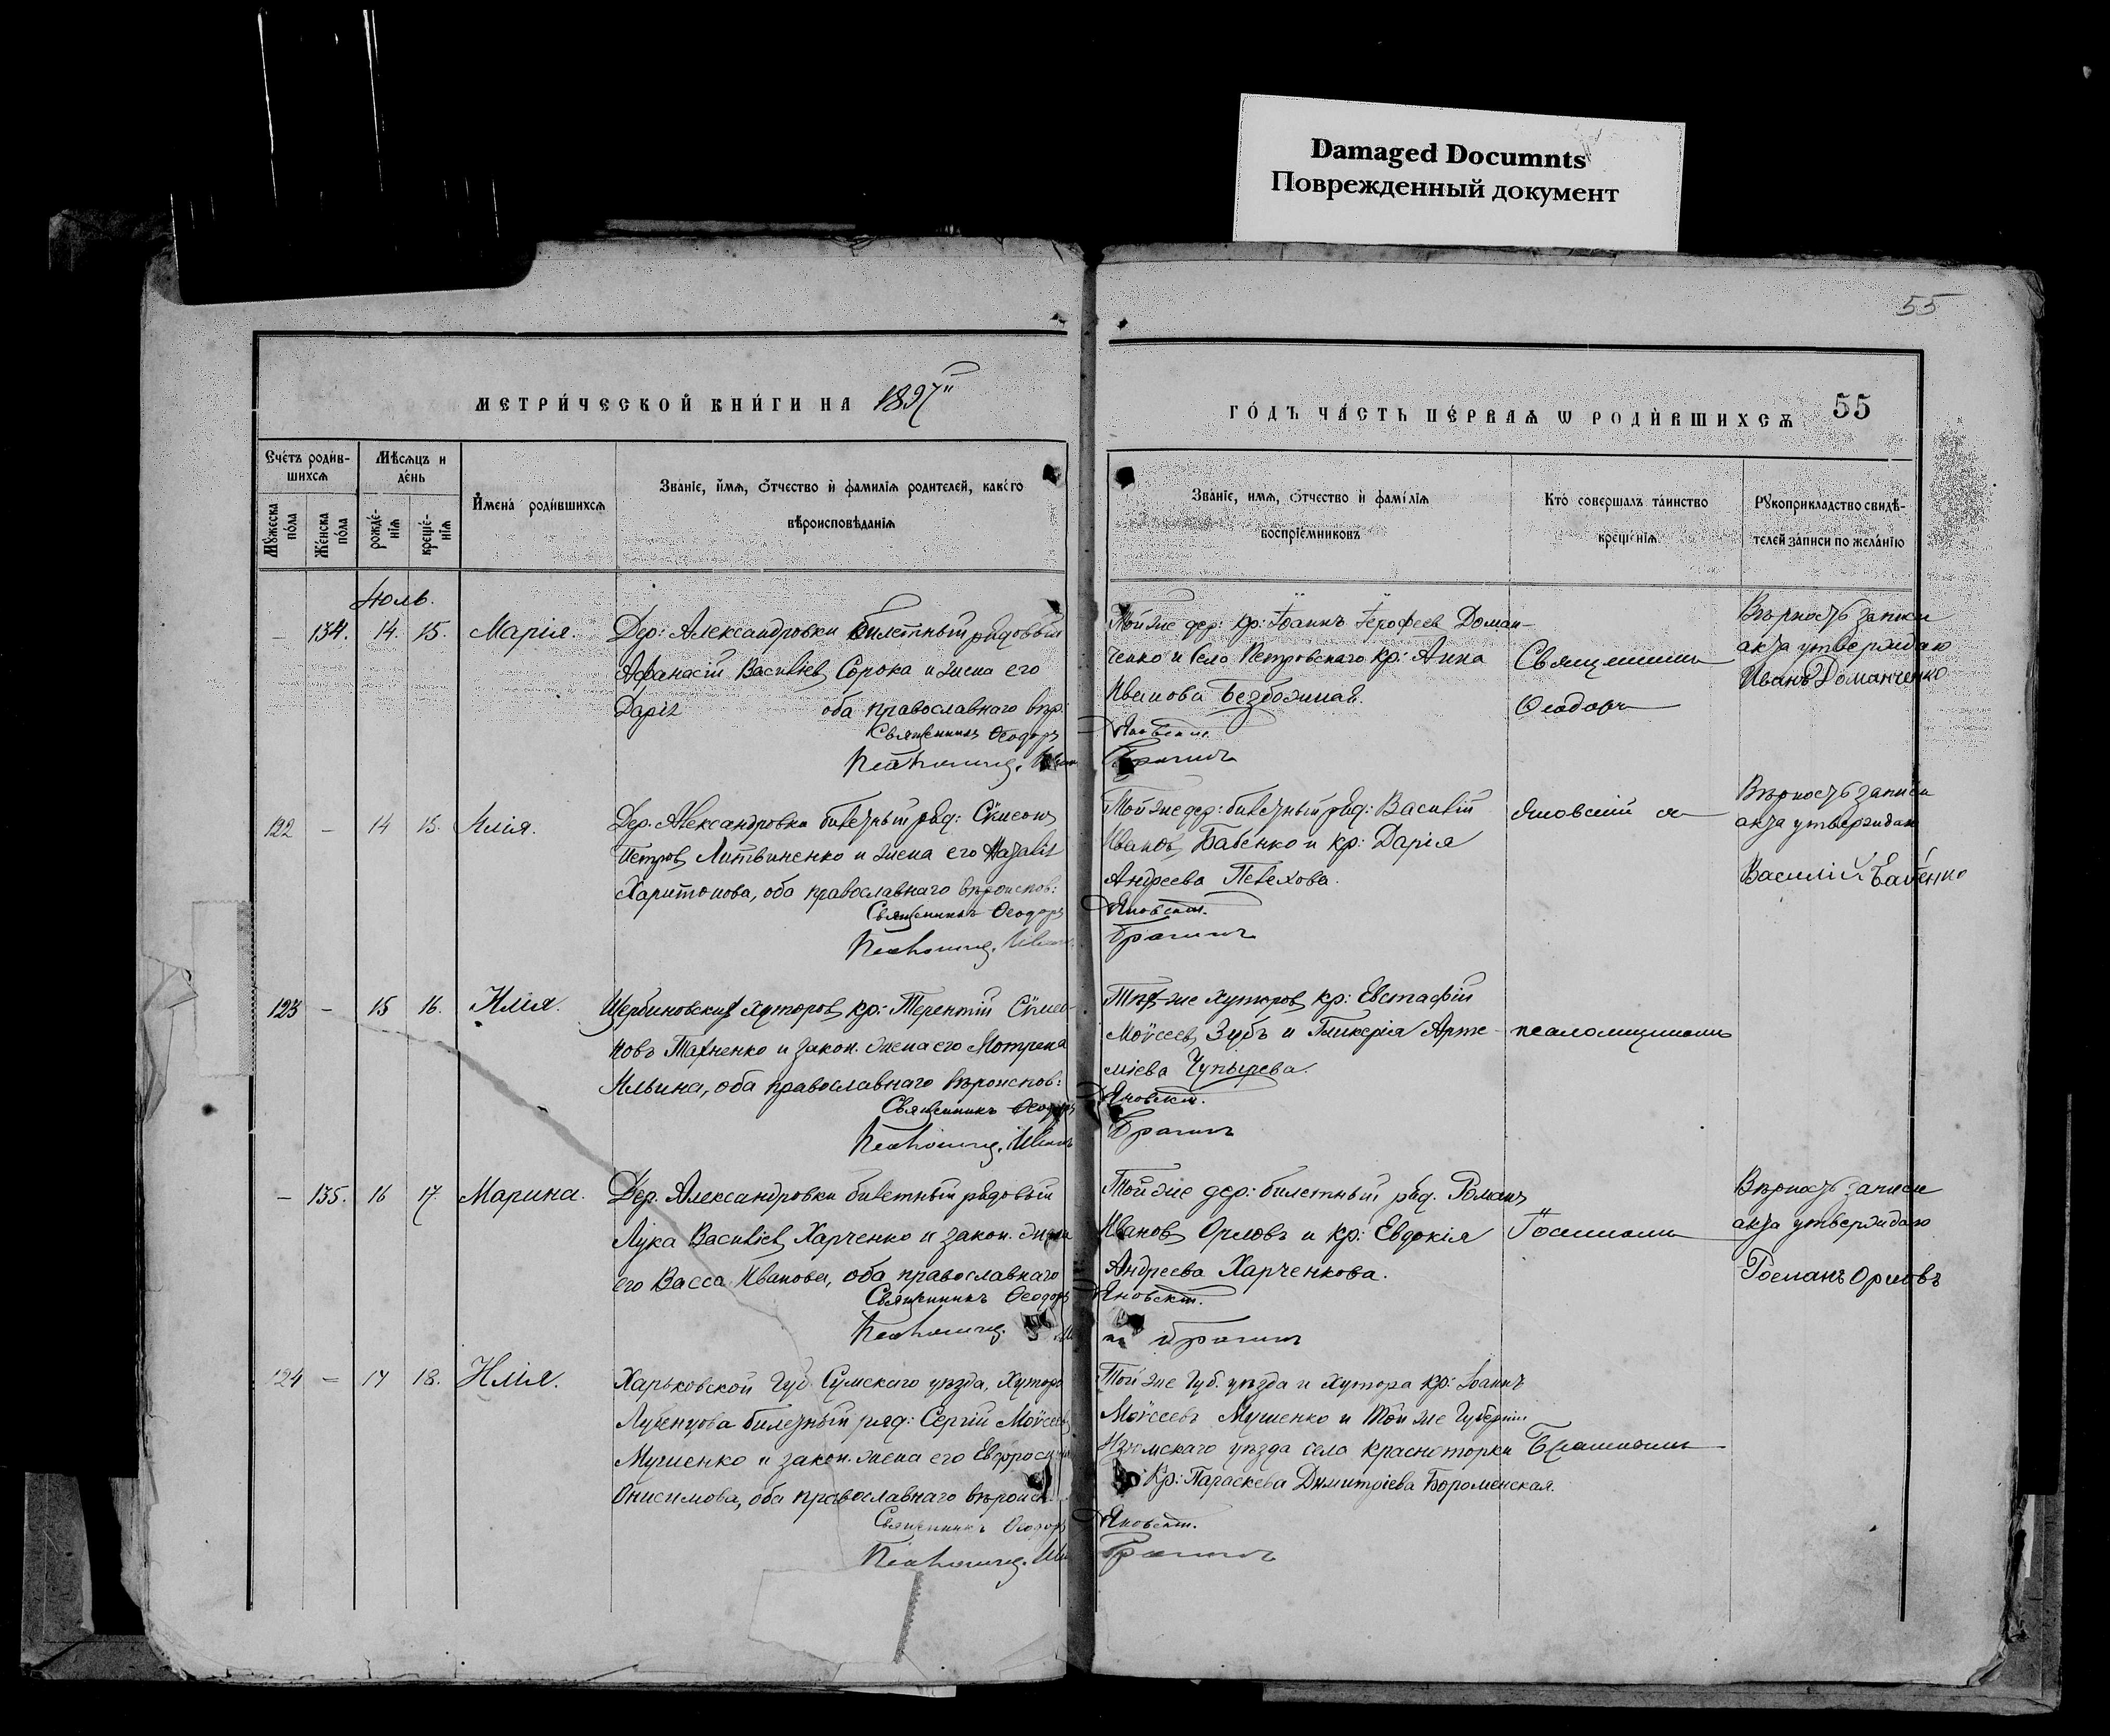 Damaged Documnts
Поврежденный документ
55
МЕТРИ́ЧЕСКОЙ КНИ́ГИ НА 1897
ГО́ДЪ ЧА́СТЬ ПЕ́РВАѦ Ѡ РОДИ́ВШИХСѦ 55
Сче́тъ роди́в-
шихсѧ
Мѣ́сѧцъ и
де́нь
Мꙋ́жеска по́ла
Же́нска по́ла
рожде́-нїѧ
креще́-нїѧ
И҆мена̀ роди́вшихсѧ
Зва́нїе, и҆́мѧ, ѻ҆́тчество и҆ фами́лїѧ роди́телей, како́гѡ
вѣроисповѣ́данїѧ
Зва́нїе, и҆мѧ, ѻ҆́тчество и҆ фамі́лїѧ
воспрїе́мниковъ
Кто̀ соверша́лъ та́инство
креще́нїѧ
Рꙋкоприкла́дство свидѣ́-
телей за́писи по жела́нїю
Іюль.
– 134. 14. 15. Марія.
Дер: Александровки билетный рядовый
Афанасій Васильевъ Сорока и жена его
Дарія оба православнаго вѣр.
Священникъ Ѳеодоръ Яновскій.
Псаломщ. Брагинъ
Той же дер: кр: Іоаннъ Іерофеевъ Доман-
ченко и села Петровскаго кр: Анна
Иванова Безбожная.
Священникъ
Ѳеодоръ
Вѣрность записи
акта утверждаю
Иванъ Доманченко
122 – 14 15. Илія.
Дер. Александровки билетный ряд: Сѵмеонъ
Петровъ Литвиненко и жена его Наталія
Харитонова, оба православнаго вѣроиспов:
Священникъ Ѳеодоръ Яновскій.
Псаломщ. Иванъ Брагинъ
Той же дер: билетный ряд: Василій
Ивановъ Бабенко и кр: Дарія
Андреева Пелехова.
Яновскій съ
Вѣрность записи
акта утверждаю
Василій Бабенко
123 – 15 16. Илія.
Щербиновскихъ хуторовъ кр: Терентій Сѵмео-
новъ Тахненко и закон. жена его Мотрона
Ильина, оба православнаго вѣроиспов:
Священникъ Ѳеодоръ Яновскій.
Псаломщ. Иванъ Брагинъ
Тѣхъ-же хуторовъ кр: Евстафій
Моѵсеевъ Зубъ и Гликерія Арте-
міева Чупырева.
псаломщикомъ
– 135. 16 17. Марина.
Дер. Александровки билетный рядовый
Лука Васильевъ Харченко и закон. жена
его Васса Иванова, оба православнаго
Священникъ Ѳеодоръ Яновскій.
Псаломщ. Брагинъ
Той же дер: билетный ряд. Романъ
Ивановъ Орловъ и кр: Евдокія
Андреева Харченкова.
Іоанномъ
Вѣрность записи
акта утверждаю
Романъ Орловъ
124 – 17 18. Илія.
Харьковской губ. Сумскаго уѣзда, хутора
билетный ряд: Сергій Моѵсеевъ
Мушенко и закон. жена его Евфросинія
Онисимова, оба православнаго вѣроисп.
Священникъ Ѳеодоръ Яновскій.
Псаломщ. Брагинъ
Той же губ. уѣзда и хутора кр: Іоаннъ
Моѵсеевъ Мушенко и той же губерніи
Изюмскаго уѣзда села Красноторки
кр: Параскева Димитріева Бороменская.
Брагинымъ